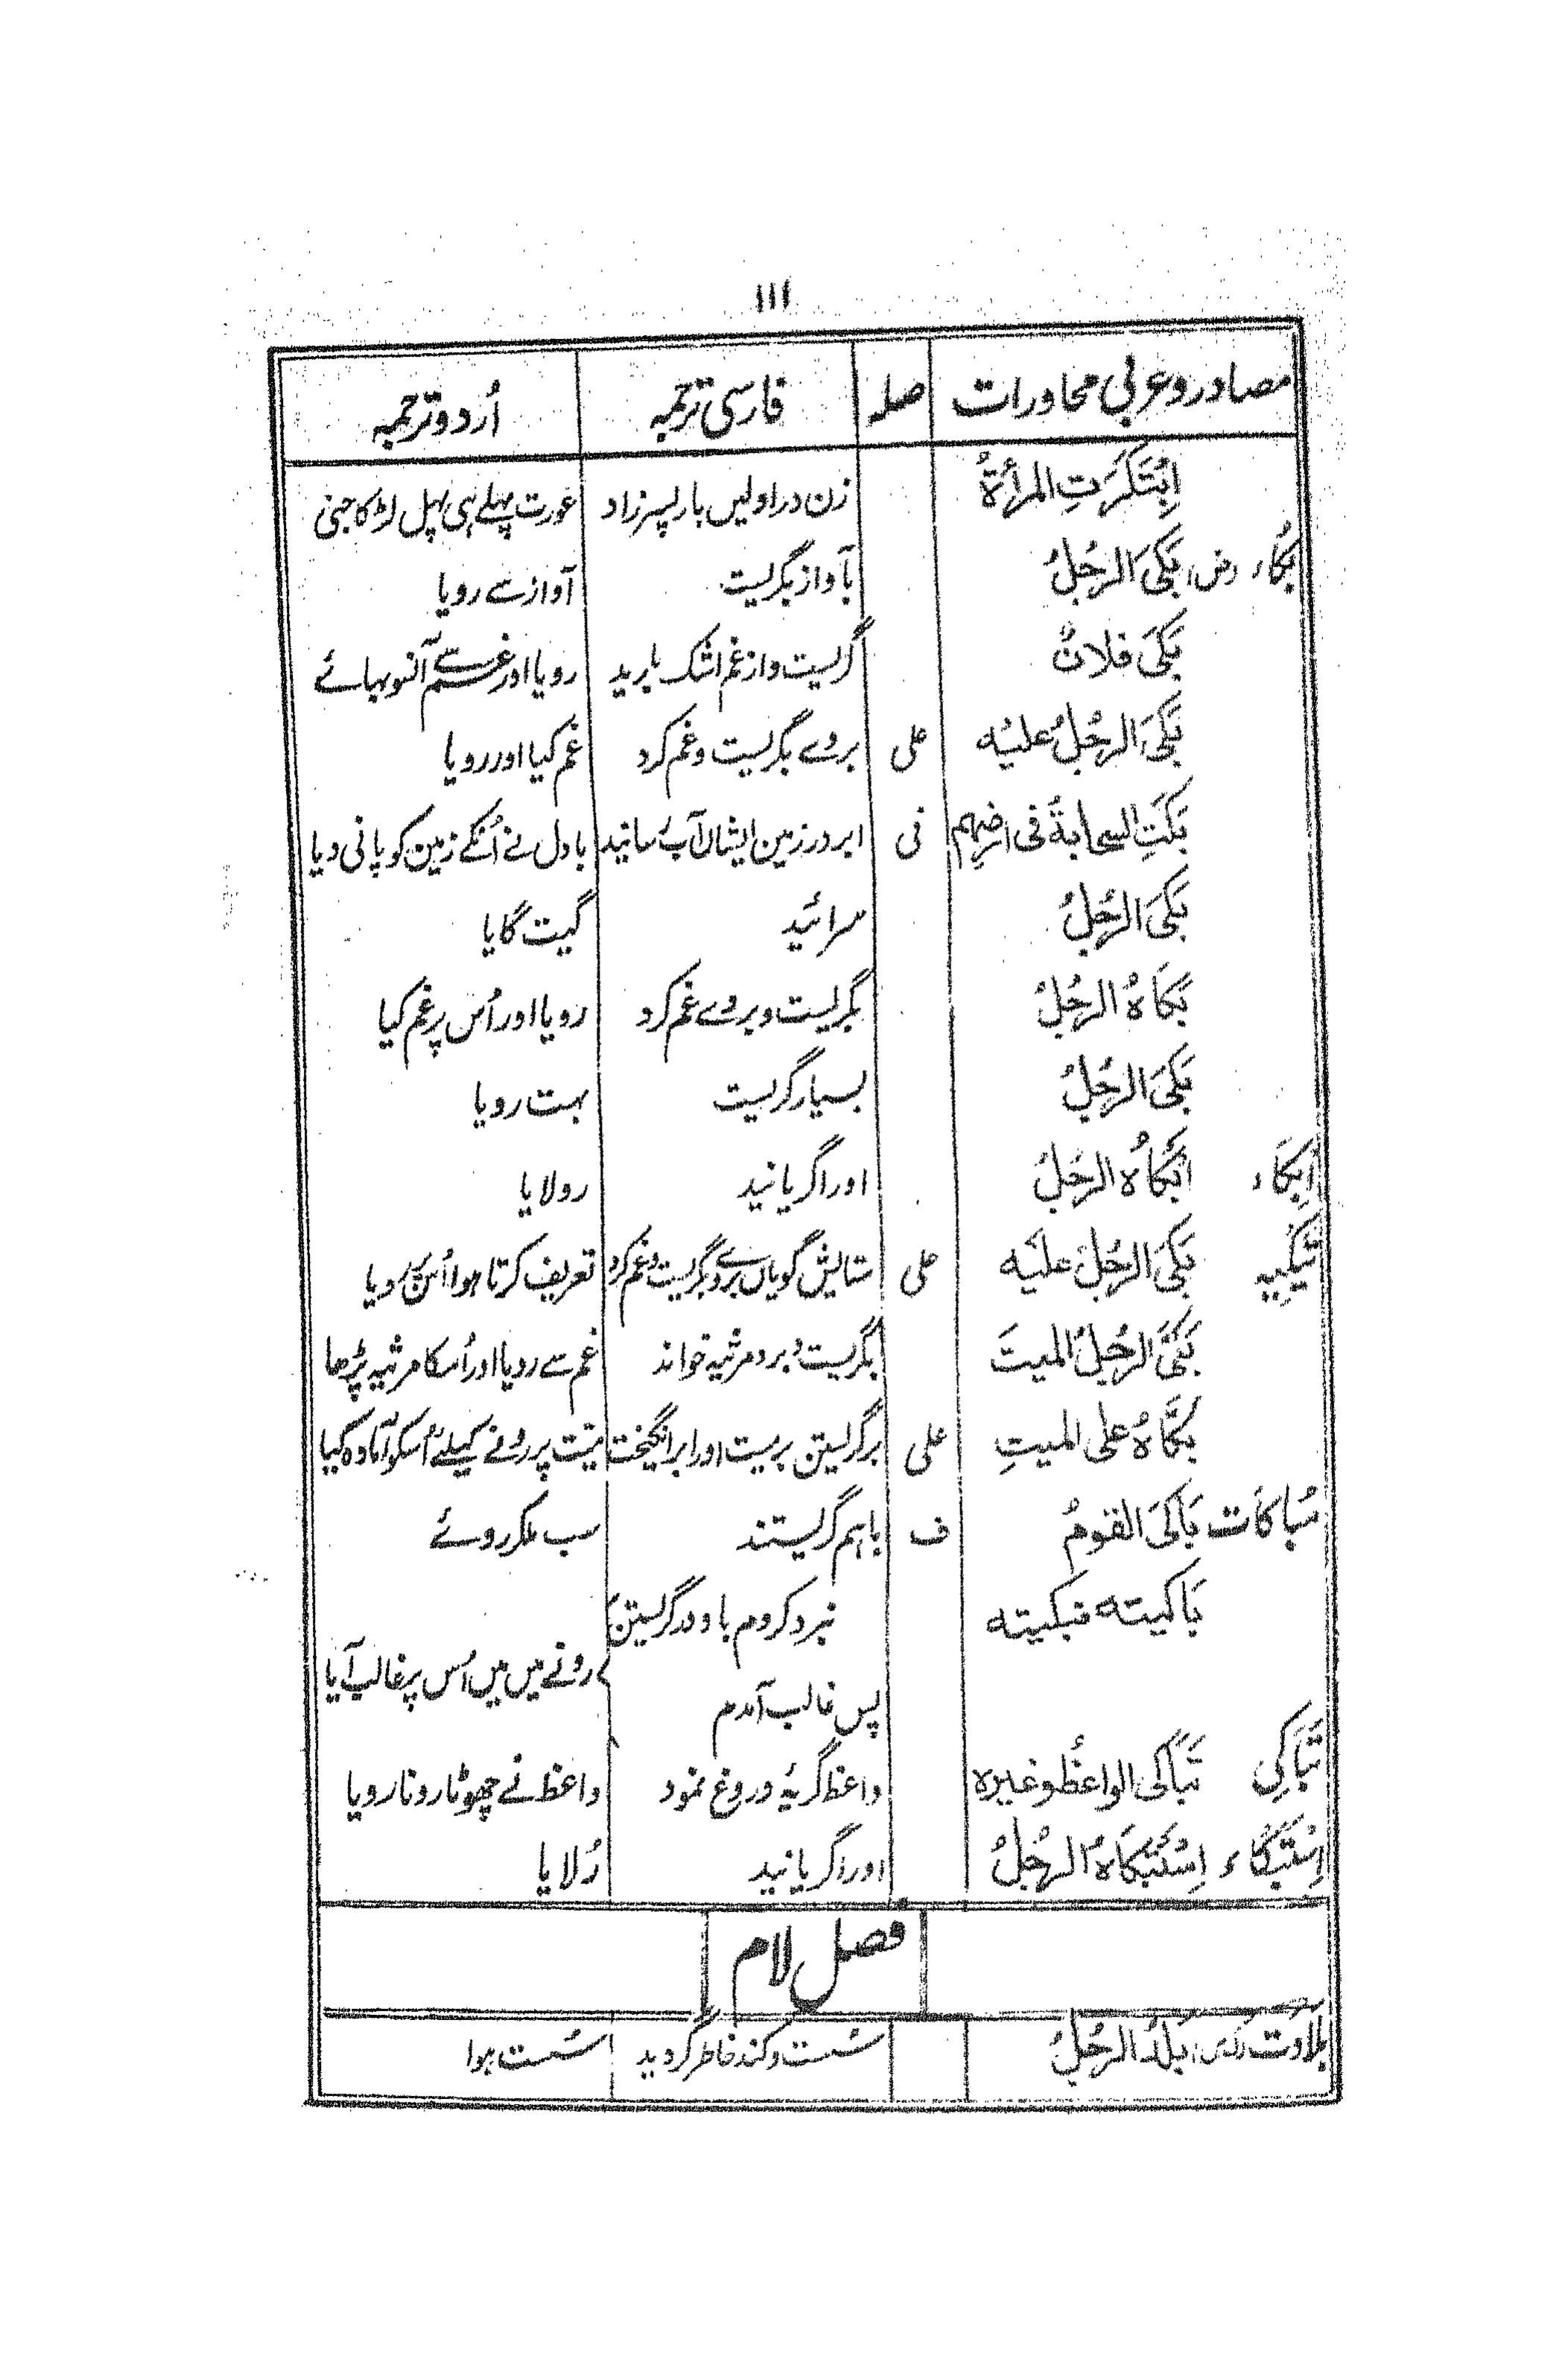 ۱۱۱
مصادر و عربی محاورات صلہ فارسی ترجمہ اُردو ترجمہ
اِبْتَکَرَتِ المرأۃُ زن در اولیں بار پسر زاد عورت پہلے ہی پہل لڑکا جنی
بُکَاء (ض) بَکَیَ الرجُلُ بآواز بگریست آواز سے رویا
بَکَیَ فلانٌ گریست و از غم اشک بارید رویا اور غم سے آنسو بہائے
بَکَیَ الرجُلُ علیْہ علی بروے بگریست و غم کرد غم کیا اور رویا
بَکَتِ السحابۃُ فی ارضِہم فی ابر در زمین ایشاں آب رسانید بادل نے اُنکے زمین کو پانی دیا
بَکَیَ الرجُلُ سرائید گیت گایا
بَکَاہُ الرجُلُ بگریست و بروے غم کرد رویا اور اُس پر غم کیا
بَکَیَ الرجُلُ بسیار گریست بہت رویا
اِبکَاء اَبْکَاہُ الرجُلُ اورا گریانید رولایا
تَبکِیہ بَکَیَ الرجُلُ علَیہ علی ستایش گویاں بروے بگریست و غم کرد تعریف کرتا ہوا اُس پر رویا
بَکَّیَ الرجُلُ المیتَ بگریست و برو مرثیہ خواند غم سے رویا اور اُسکا مرثیہ پڑھا
بَکَّاہُ علی المیتِ علی برگریستن بر میت اورا برانگیخت میّت پر رونے کیلئے اُسکو آمادہ کیا
مُباکات بَاکَیَ القومُ ف باہم گریستند سب ملکر روئے
بَاکیتہ فبکیتہ نبرد کردم با و در گریستن
رونے میں میں اُس پر غالب آیا
پس غالب آمدم
تَبَاکِی تَبَاکَی الواعظُ وغیرہ واعظ گریۂ دروغ نمود واعظ نے جھوٹا رونا رویا
اِسْتِبْکَاء اِسْتَبْکَاہُ الرجُلُ اورا گریانید رُلایا
فصل لام
بلادت (ک) بَلُدَ الرجُلُ سُست و کند خاطر گردید سُست ہوا